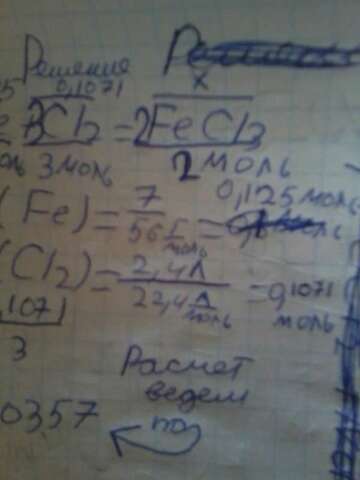 Решение
0,1071 x
3Cl2 = 2FeCl3
3 моль 2 моль
(Fe) = 7 / 56 г/моль = 0,125 моль
(Cl2) = 2,4 л / 22,4 л/моль = 0,1071 моль
1071
3
Расчет
ведем
по
0357